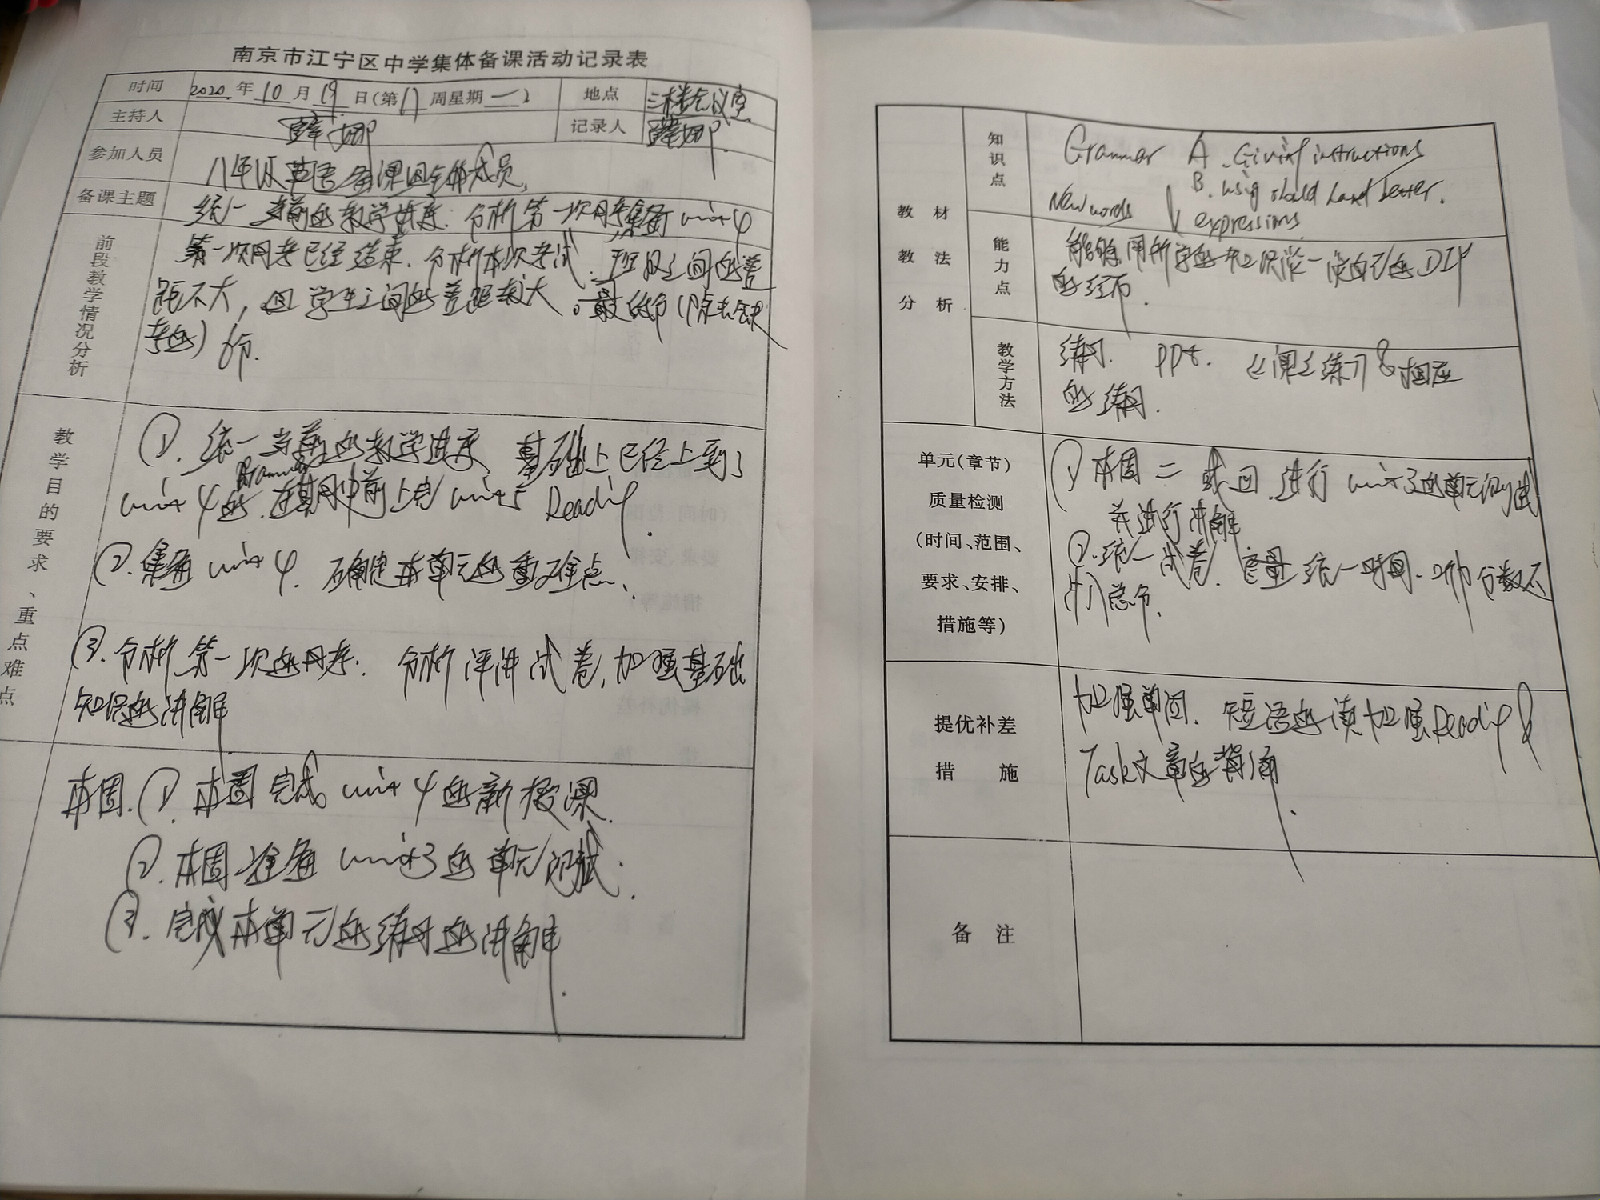 南京市江宁区中学集体备课活动记录表
时间 2020 年 10 月 19 日(第 周星期 一 ) 地点 三楼会议室
主持人 记录人
参加人员 八年级英语备课组全体成员
备课主题 统一当前的教学进度. 分析第一次月考 集备 unit 4
前段教学情况分析
第一次月考已经结束. 分析本次考试. 班级之间的差
距不大, 但学生之间的差距较大. 最低分 (除去缺
考的) 6分.
教学目的要求、重点难点
①. 统一当前的教学进度. 基础上已经上到了
Grammar
unit 4的. 在期中前上完 unit 5 Reading
②. 集备 unit 4. 确定本单元的重难点.
③. 分析第一次的月考. 分析评讲试卷, 加强基础
知识的讲解
本周. ①. 本周完成 unit 4 的新授课.
②. 本周准备 unit 3 的单元测试.
③. 完成本单元的练习的讲解.
教材教法分析
知识点
Grammar A. Giving instructions
B. using should had better.
New words expressions
能力点
能够用所学的知识 一 自己的 DIY
的经历.
教学方法
练习. ppt. 《课课练》& 相应
的练习.
单元(章节)
质量检测
(时间、范围、
要求、安排、
措施等)
① 本周二或四 进行 unit 3 的单元测试
并进行讲解
②. 统一试卷. 统一时间. 分数
总分.
提优补差
措 施
加强单词. 短语的 读 加强 Reading &
Task 文章的背诵.
备 注